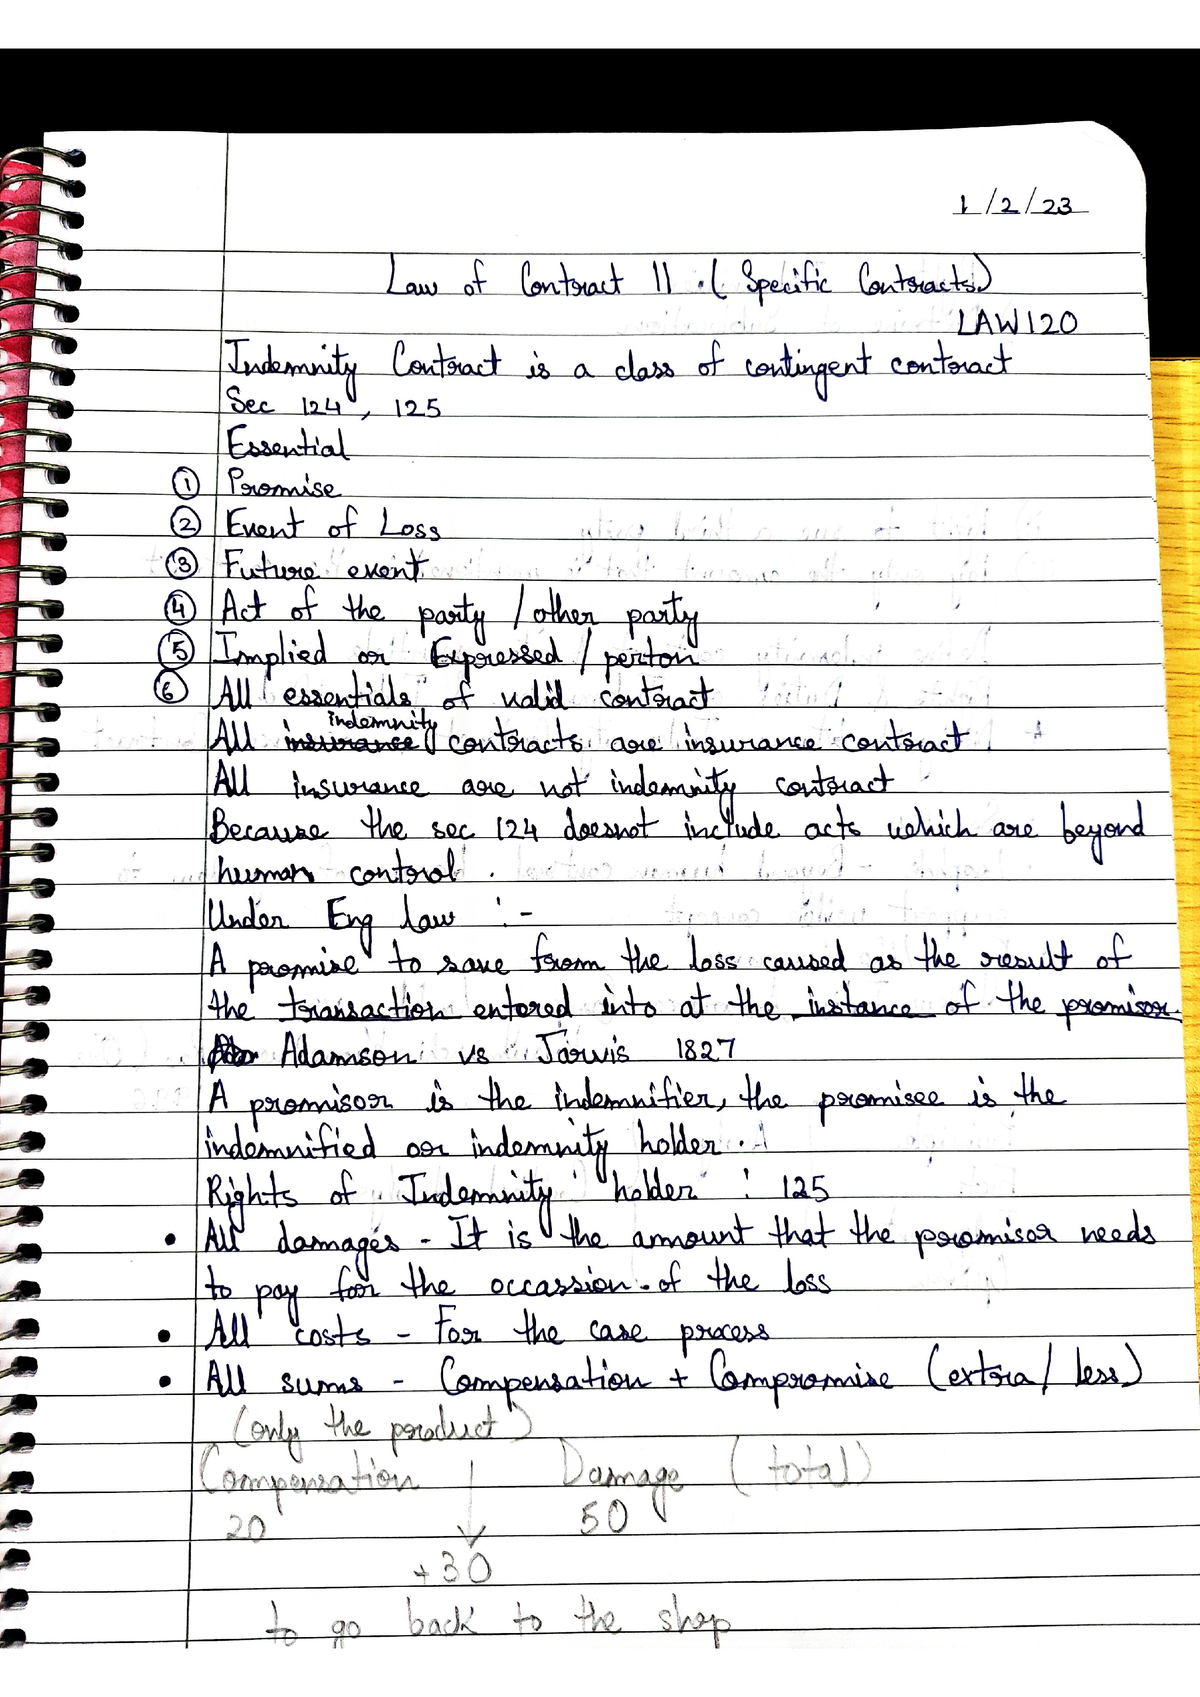 1/2/23
Law of Contract II . ( Specific Contracts)
LAW120
Indemnity Contract is a class of contingent contract
Sec 124 , 125
Essential
① Promise
② Event of Loss
③ Future event
④ Act of the party / other party
⑤ Implied or Expressed / perton
⑥ All essentials of valid contract
indemnity
All insurance contracts are insurance contract
All insurance are not indemnity contract
Because the sec 124 doesnot include acts which are beyond
human control .
Under Eng law :-
A promise to save from the loss caused as the result of
the transaction entered into at the instance of the promisor.
Adamson vs Jarvis 1827
A promisor is the indemnifier, the promisee is the
indemnified or indemnity holder .
Rights of Indemnity holder : 125
• All damages - It is the amount that the promisor needs
to pay for the occassion of the loss
• All costs - For the case process
• All sums - Compensation + Compromise (extra/ less)
(only the product)
Compensation Damage (total)
20 50
+30
to go back to the shop